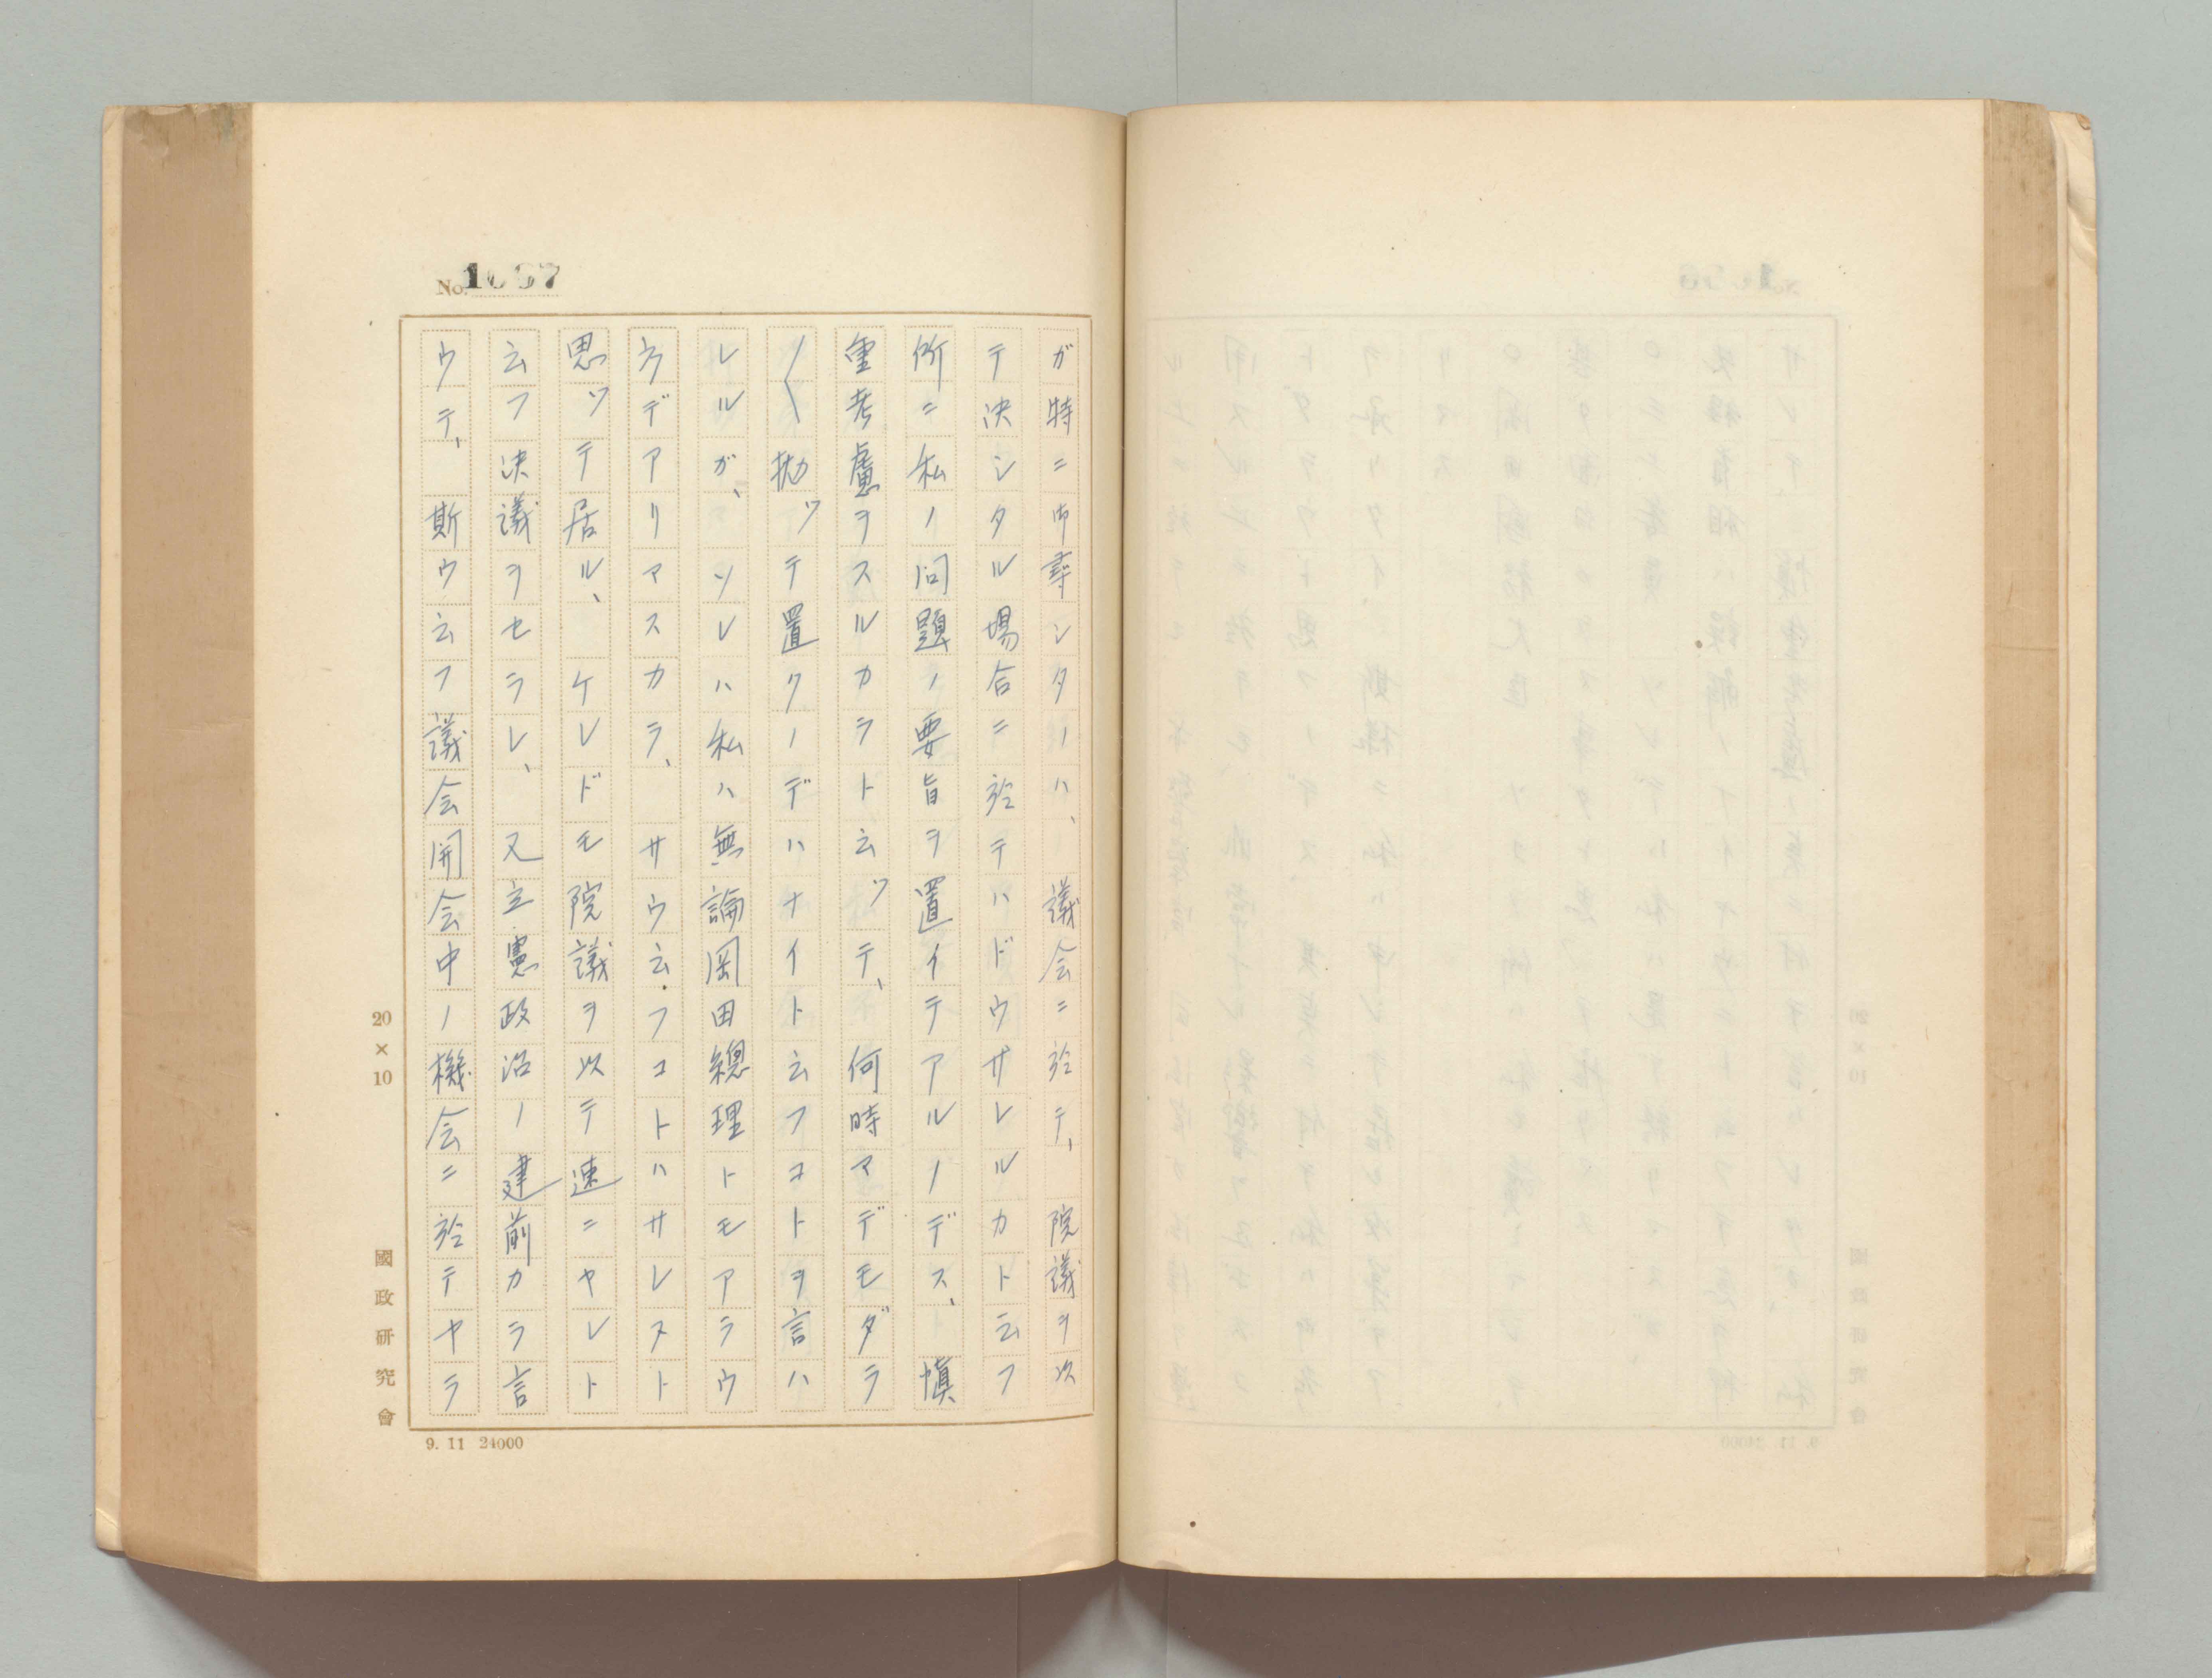 No.
ガ特ニ御尋シタノハ、議会ニ於テ、院議ヲ以
テ決シタル場合ニ於テハドウサレルカト云フ
所ニ私ノ問題ノ要旨ヲ置イテアルノデス、慎
重考慮ヲスルカラト云ツテ、何時マデモダラ
〱拋ツテ置クノデハナイト云フコトヲ言ハ
レルガ、ソレハ私ハ無論岡田総理トモアラウ
方デアリマスカラ、サウ云フコトハサレヌト
思ツテ居ル、ケレドモ院議ヲ以テ速ニヤレト
云フ決議ヲセラレ、又立憲政治ノ建前カラ言
ウテ、斯ウ云フ議会開会中ノ機会ニ於テヤラ
20×10
國政研究會
9. 11 24000